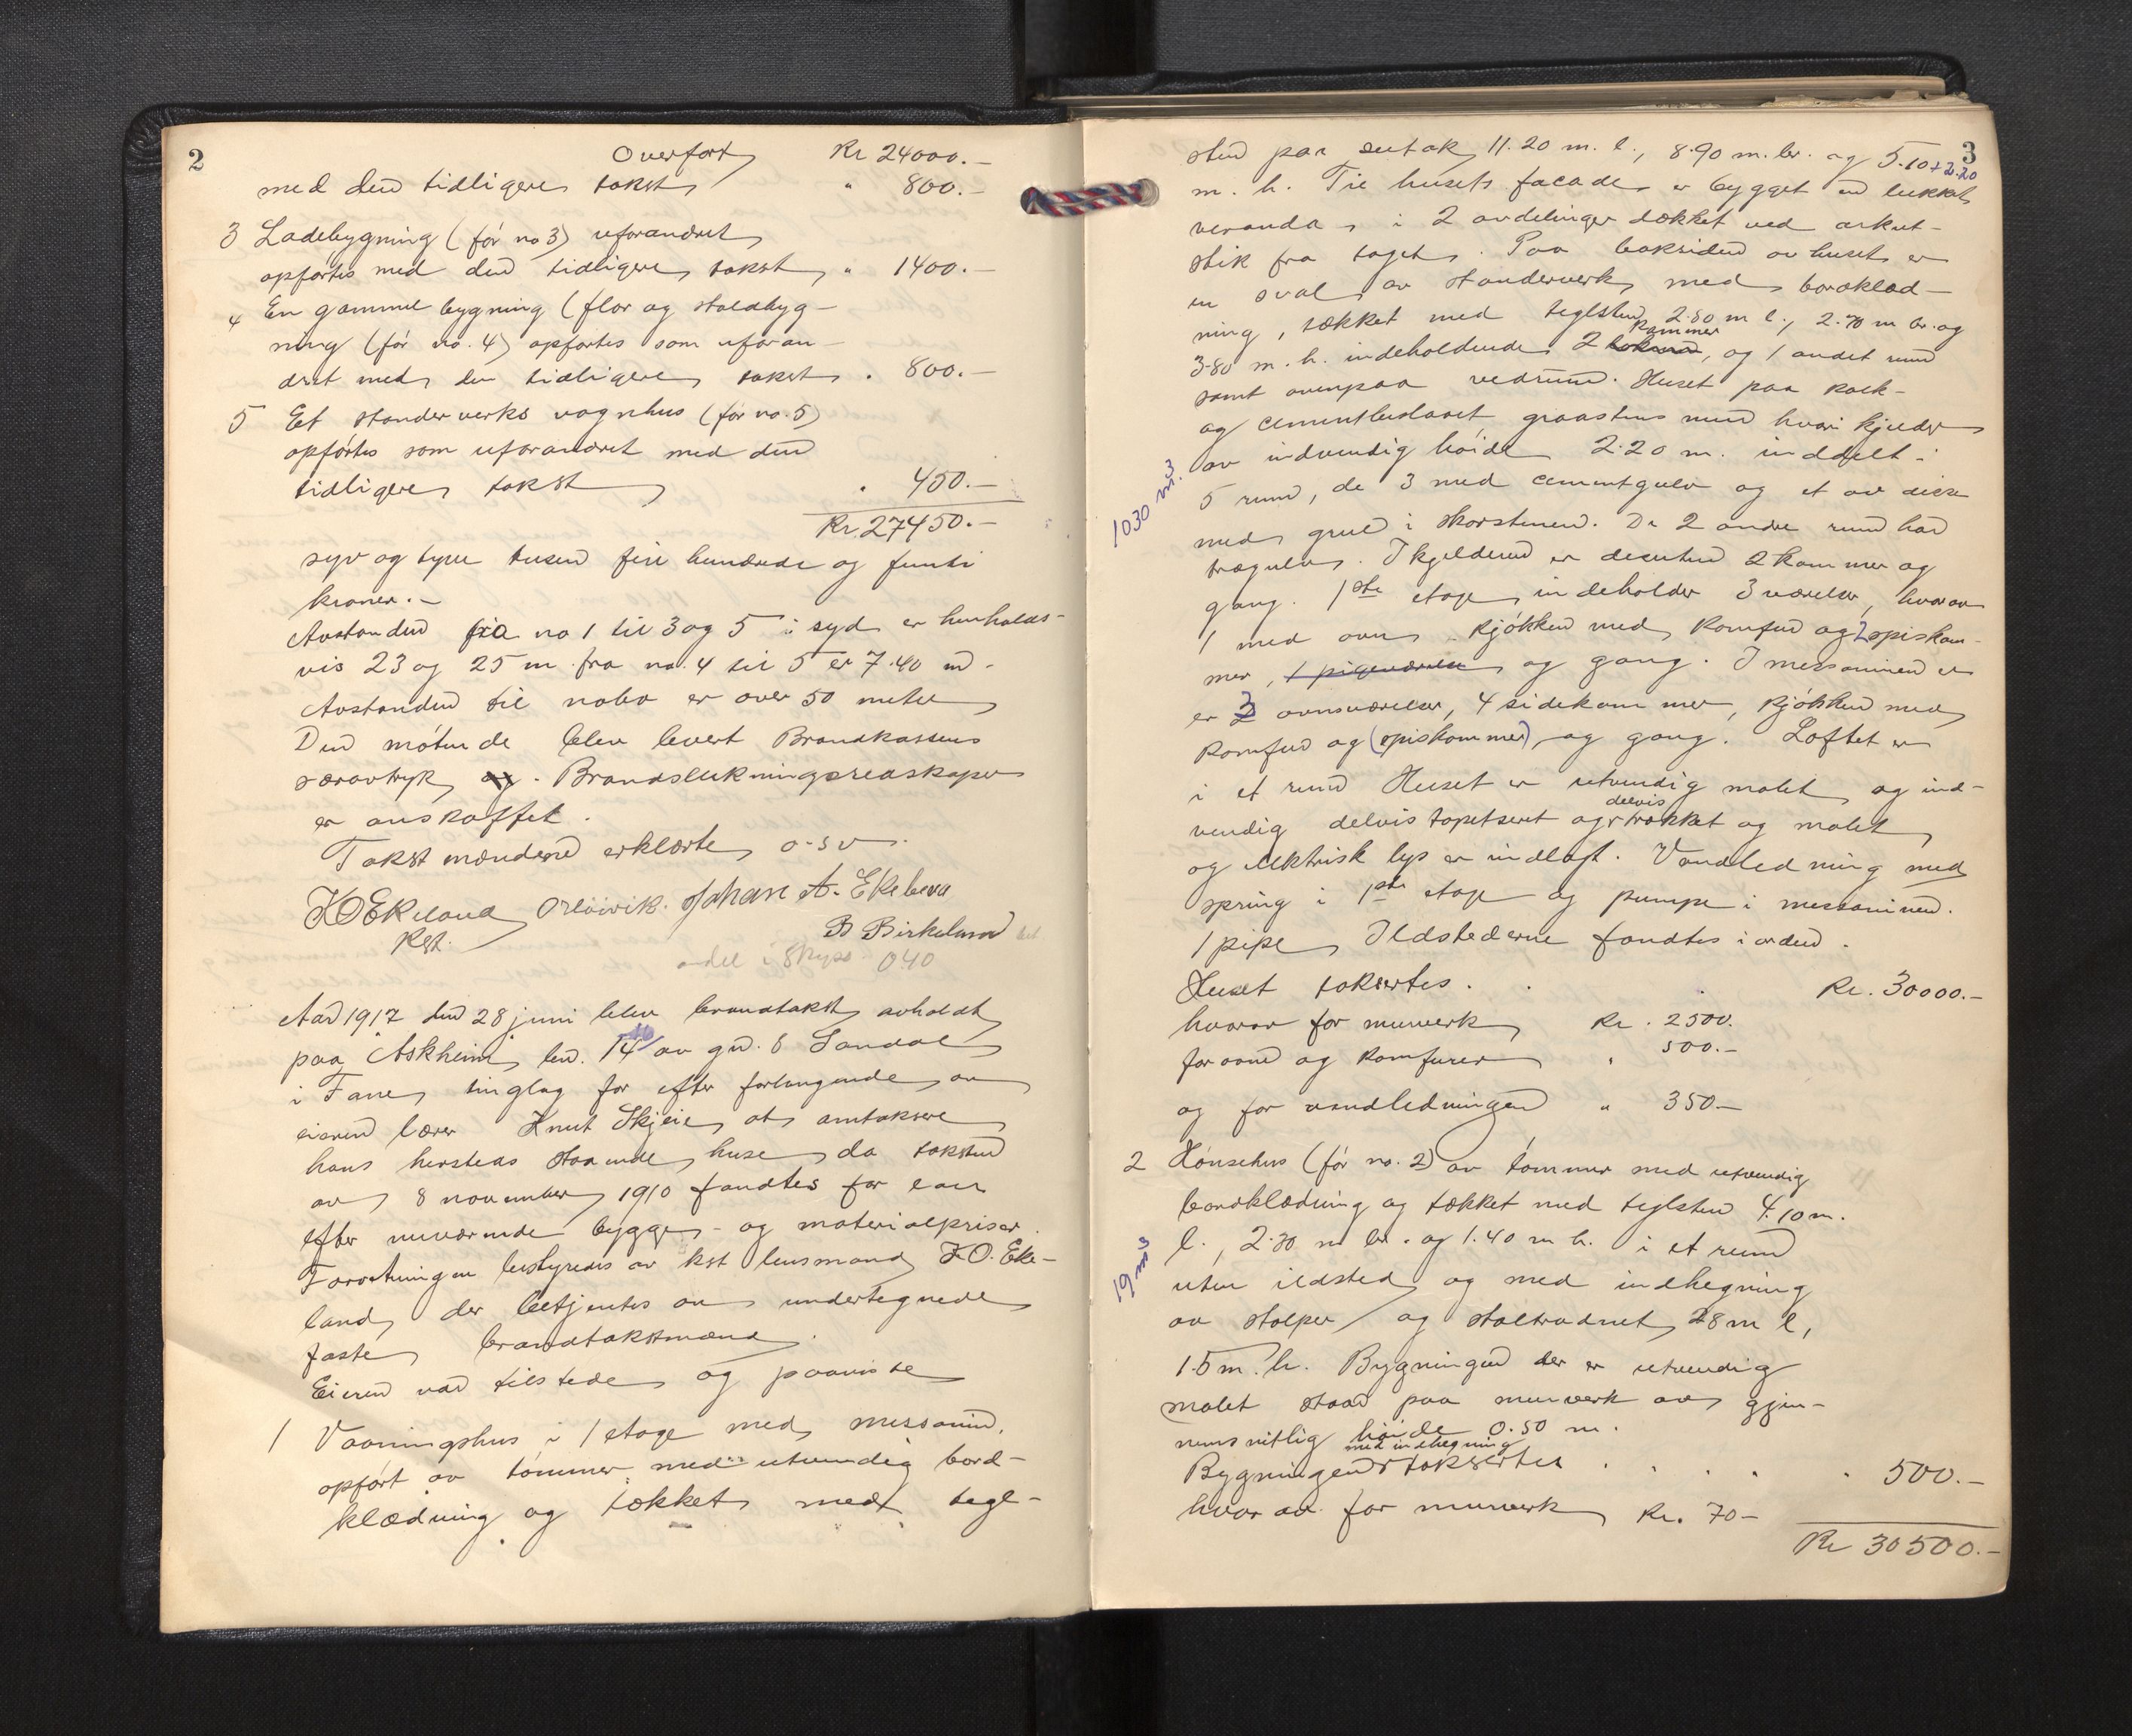 2
Overført Kr 24000.-
med den tidligere takst " 800.-
3 Ladebygning (før no 3) uforandret
opførtes med den tidligere takst " 1400.-
4 En gammel bygning (flor og staldbyg-
ning (før no. 4) opførtes som uforan-
dret med den tidligere takst " 800.-
5 Et standerverks vognhus (før no. 5)
opførtes som uforandret med den
tidligere takst " 450.-
Kr. 27450.-
syv og tyve tusen fire hundrede og femti
kroner.-
Avstanden fra no 1 til 3 og 5 i syd er henholds-
vis 23 og 25 m. fra no. 4 til 5 er 7.40 m.
Avstanden til nabo er over 50 meter
Den møtende blev levert Brandkassens
særavtryk og. Brandslukningsredskaper
er anskaffet.
Takstmændene erklærte o.s.v.
K O Ekeland O Løvik. Johan A. Ekeberg
Kst.
B Birkeland
andel i Skyss 040
Aar 1917 den 28 juni blev brandtakst avholdt
paa Askheim, br. 14 av gn. 6 Sandal
i Fane tinglag for efter forlangende av
eieren lærer Knut Skjeie at omtaksere
hans hersteds staaende huse da taksten
av 8 november 1910 fandtes for lav
efter nuværende bygge- og materialpriser.
Forretningen bestyredes av kst lensmand K.O. Eke-
land, der betjentes av undertegnede
faste brandtakstmænd.
Eieren var tilstede og paaviste
1 Vaaningshus i 1 etage med messanin,
opført av tømmer med utvendig bord-
klædning og tækket med tegl-
3
sten paa sutak 11.20 m. l., 8.90 m. br. og 5.10 + 2.20
m. h. Til husets facade er bygget en lukket
veranda i 2 avdelinger dækket ved arkut-
stik fra taget. Paa baksiden av huset er
en sval av standerverk med bordklæd-
ning, tækket med teglsten, 2.80 m l., 2.70 m br. og
kammer
3.80 m. h. indeholdende 2, og 1 andet rum
samt ovenpaa vedrum. Huset paa kalk-
og cementbeslaaet graastens mur hvori kjelder
av indvendig høide 2.20 m. inddelt i
1030 m.3
5 rum, de 3 med cementgulv og et av disse
med grue i skorstenen. De 2 andre rum har
trægulv. I kjelderen er desuten 2 kammer og
gang. 1ste etage indeholder 3 værelser, hvorav
1 med ovn, kjøkken med komfur og 2 spiskam-
mer, 1 pigeværelse og gang. I messaninen er
er 3 ovnsværelser, 4 sidekammer, kjøkken med
komfur og (spiskammer), og gang. Loftet er
i et rum Huset er utvendig malet og ind-
delvis
vendig delvis tapetseret og trækket og malet,
og elektrisk lys er indlagt. Vandledning med
spring i 1ste etage og pumpe i messaninen.
1 pipe, Ildstederne fandtes i orden.
Huset taksertes . . . Kr. 30000.-
hvorav for murverk Kr. 2500.
for ovne og komfurer " 500.-
og for vandledningen " 350-
2 Hønsehus (før no. 2) av tømmer med utvendig
bordklædning og tækket med teglsten 4.10 m.
l., 2.30 m br. og 1.40 m h. i et rum
19 m3
uten ildsted og med indhegning
av stolper og staltraadnet, 28 m l,
1.5 m. h. Bygningen der er utvendig
malet staar paa murverk av gjen-
nemsnitlig høide 0.50 m.
med indhegning
Bygningen taksertes . . . . . 500.-
hvorav for murverk Kr. 70-
Kr 30500.-